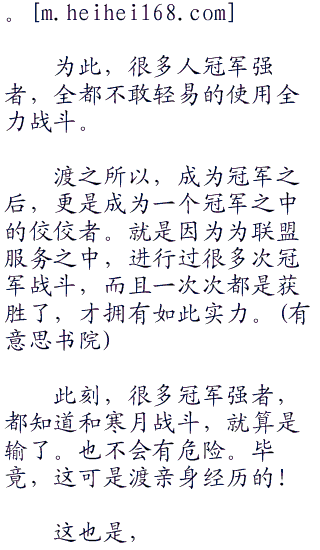 。[m.heihei168.com]
为此，很多人冠军强
者，全都不敢轻易的使用全
力战斗。
渡之所以，成为冠军之
后，更是成为一个冠军之中
的佼佼者。就是因为为联盟
服务之中，进行过很多次冠
军战斗，而且一次次都是获
胜了，才拥有如此实力。(有
意思书院)
此刻，很多冠军强者，
都知道和寒月战斗，就算是
输了。也不会有危险。毕
竟，这可是渡亲身经历的！
这也是，